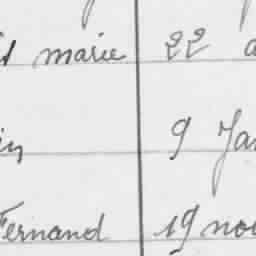 marie 22
9 Jan
Fernand 19 nov